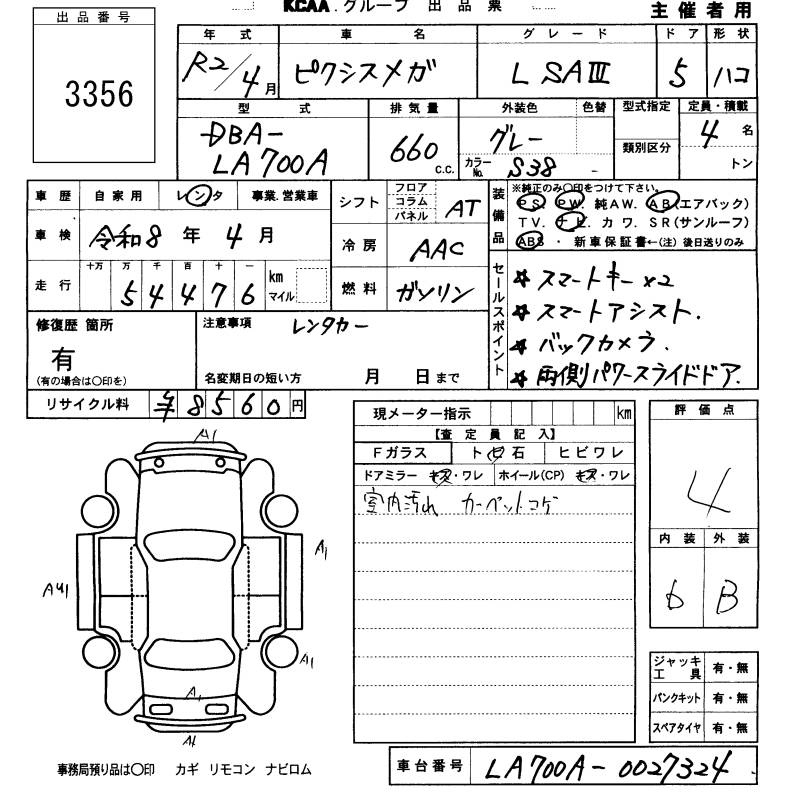 KCAA.グループ 出品票
主催者用
出品番号
3356
年式 車名 グレード ドア 形状
R2/4月 ピクシスメガ L SAⅢ 5 ハコ
型式 排気量 外装色 色替 型式指定 定員・積載
DBA-
LA700A 660 c.c. グレー カラーNo. S38 類別区分 4名 トン
車歴 自家用 レンタ 事業.営業車
車検 令和8年4月
走行 十万 万 千 百 十 一
54476 km マイル
シフト フロア コラム パネル AT
冷房 AAC
燃料 ガソリン
装備品
※純正のみ○印をつけて下さい。
PS. PW. 純AW. AB(エアバック)
TV. ナビ カワ. SR(サンルーフ)
ABS・新車保証書←(注)後日送りのみ
セールスポイント
☆ スマートキー×2
☆ スマートアシスト.
☆ バックカメラ.
☆ 両側パワースライドドア.
修復歴 箇所
有
(有の場合は○印を)
注意事項 レンタカー
名変期日の短い方 月 日まで
リサイクル料 ¥8560円
現メーター指示 km
【査定員記入】
Fガラス トビ石 ヒビワレ
ドアミラー キズ・ワレ ホイール(CP) キズ・ワレ
室内汚れ カーペットコゲ
評価点
4
内装 外装
b B
ジャッキ工具 有・無
パンクキット 有・無
スペアタイヤ 有・無
A1
A1
AW1
A1
A1
A1
事務局預り品は○印 カギ リモコン ナビロム
車台番号 LA700A-0027324